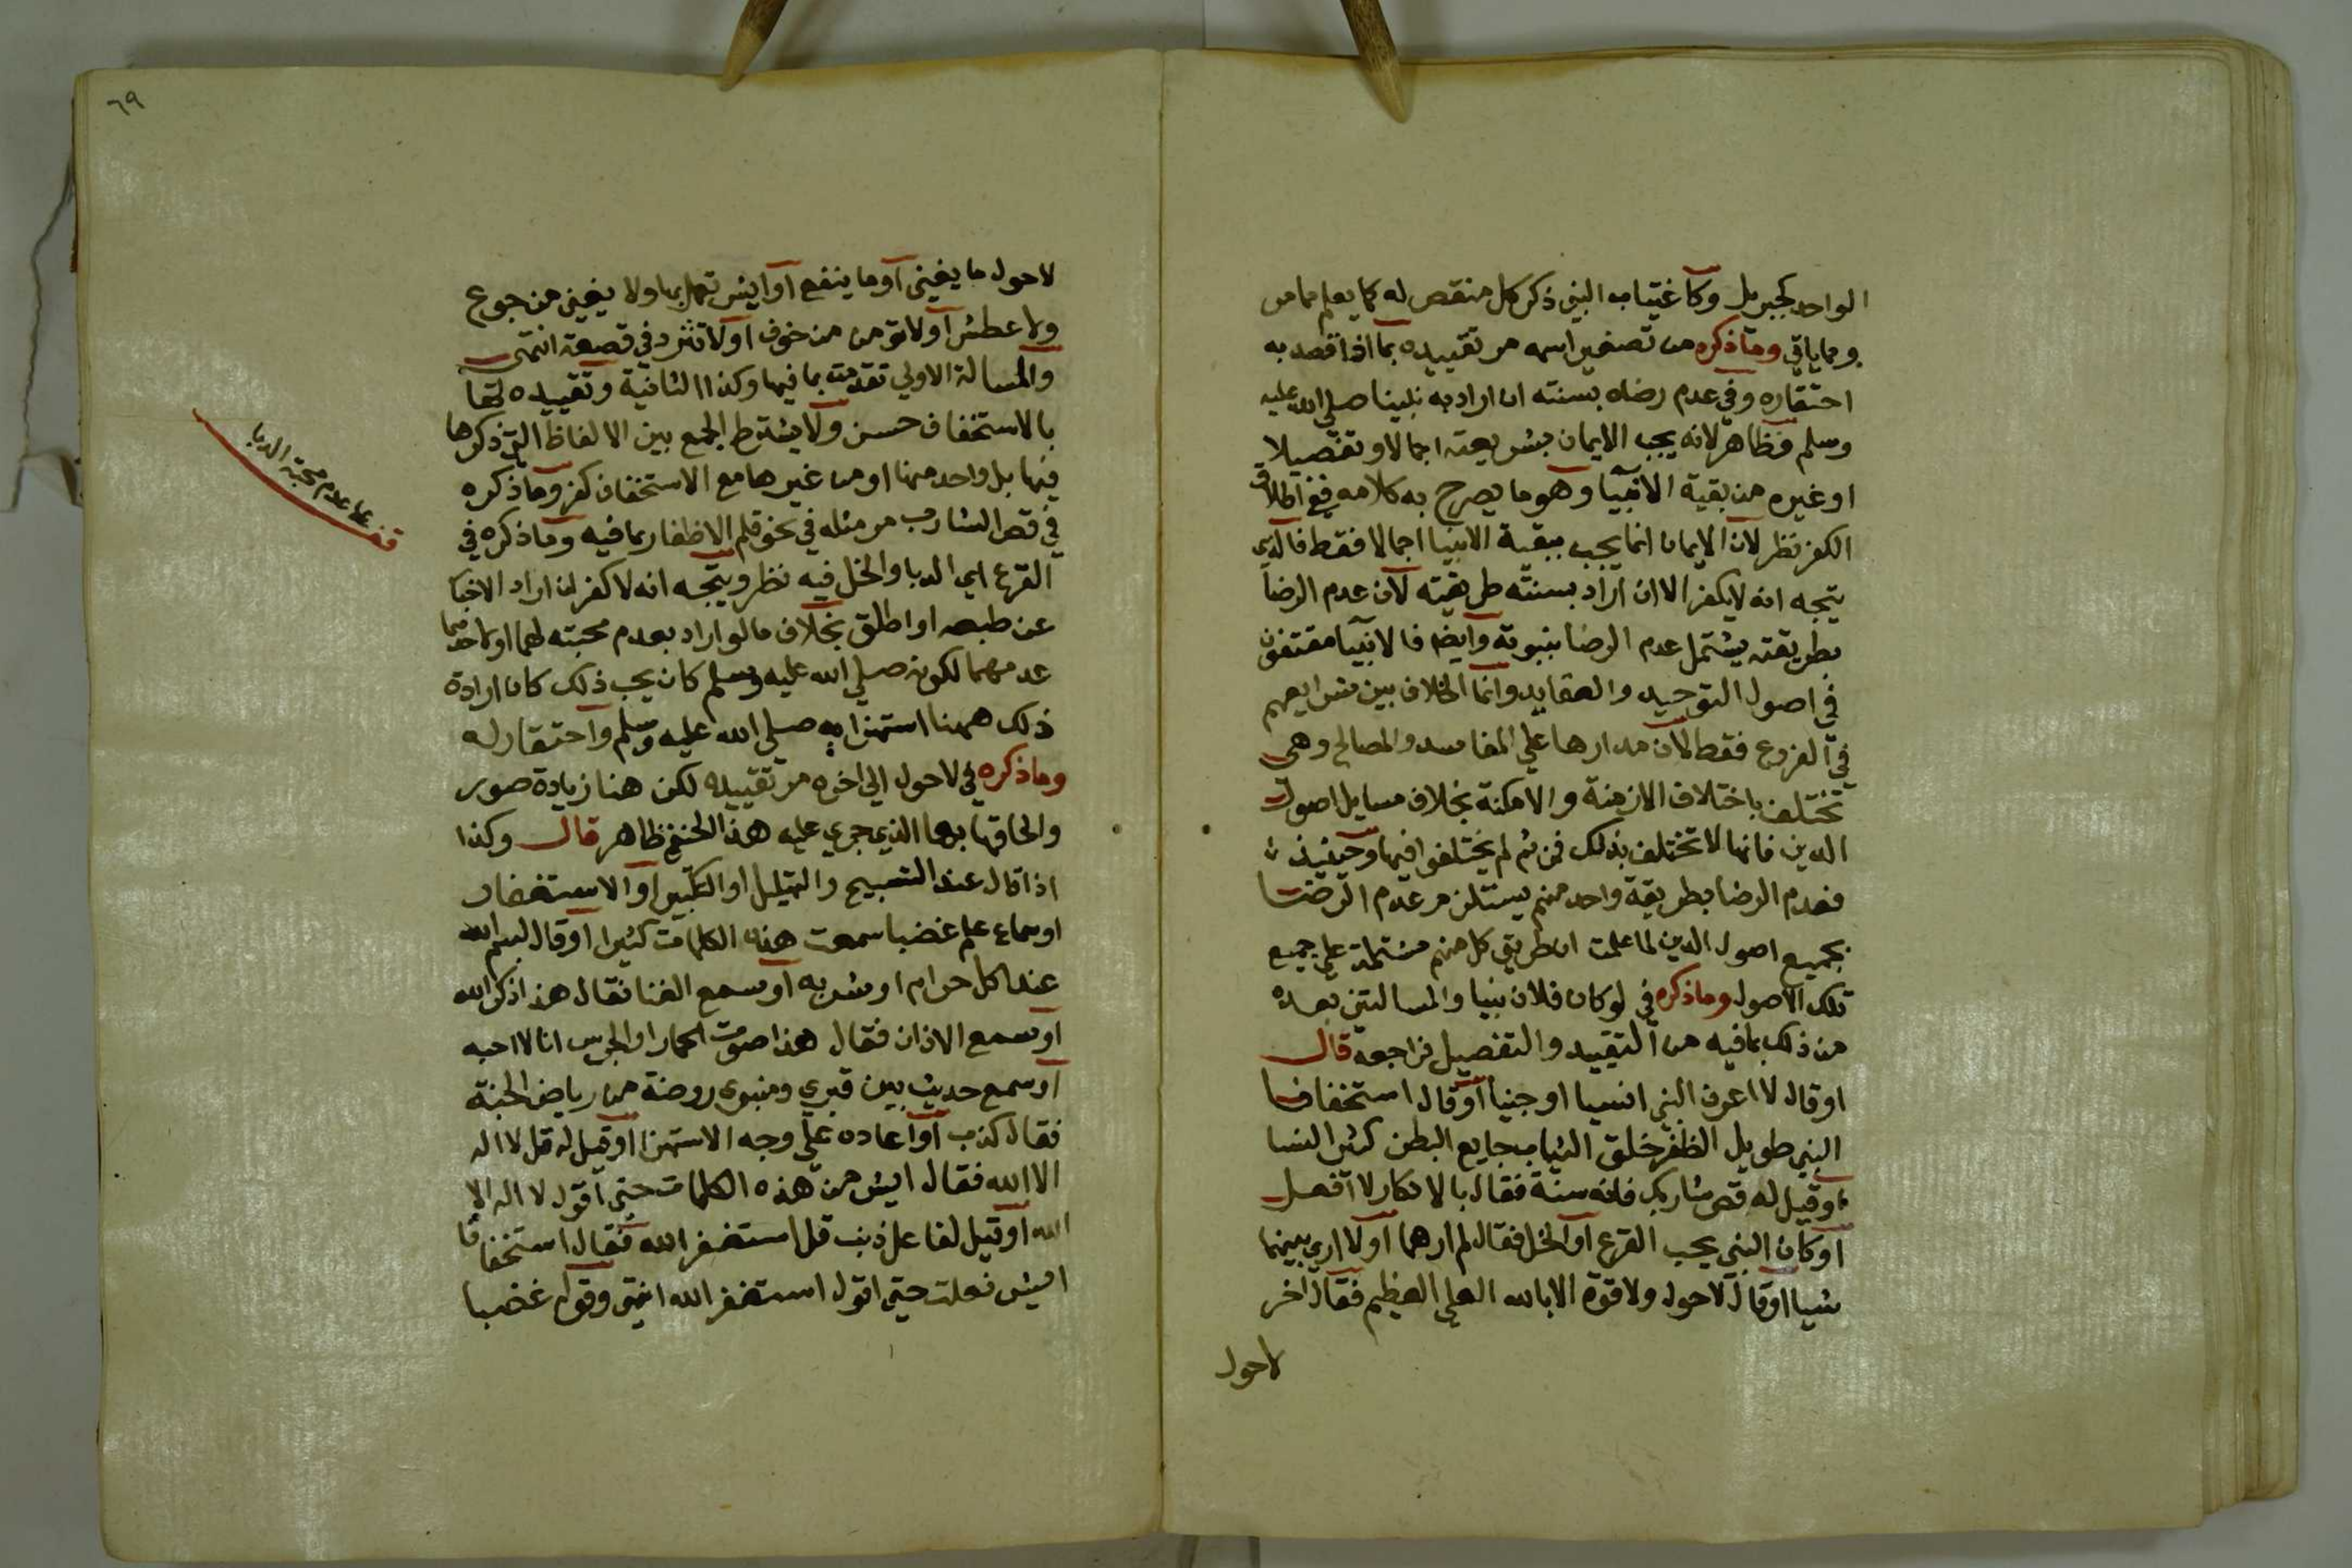 الواحد كجبريل وكاغتياب النبي ذكر كل منقص له كما يعلم مما مر
ومما ياتي وما ذكره من تصغير اسمه مر تقييده بما اذا قصد به
احتقاره وفي عدم رضاه بسنته ان اراد به نبينا صلي الله عليه
وسلم فظاهر لانه يجب الايمان بشريعته اجمالا وتفصيلا
او غيره من بقية الانبيا وهو ما يصرح به كلامه ففي اطلاق
الكفر نظر لان الايمان انما يجب ببقية الانبيا اجمالا فقط فالذي
يتجه انه لا يكفر الا ان اراد بسنته طريقته لان عدم الرضا
بطريقته يشتمل عدم الرضا بنبوته وايضا فالانبيا متفقون
في اصول التوحيد والعقايد وانما الخلاف بين شرايعهم
في الفروع فقط لان مدارها علي المفاسد والمصالح وهي
تختلف باختلاف الازمنة والامكنة بخلاف مسايل اصول
الدين فانها لا تختلف بذلك فمن ثم لم يختلفوا فيها وحينيذ
فعدم الرضا بطريقة واحد منهم يستلزم عدم الرضا
بجميع اصول الدين لما علمت ان طريق كل منهم مشتملة علي جميع
تلك الاصول وما ذكره في لو كان فلان نبيا والمسالتين بعده
من ذلك بما فيه من التقييد والتفصيل فراجعه قال
او قال لا اعرف النبي انسيا او جنيا او قال استخفافا
النبي طويل الظفر خلق الثياب جايع البطن كثير النسا
او قيل له قص شاربك فانه سنة فقال بالانكار لا افعل
او كان النبي يحب القرع او الخل فقال لم ارهما او لا اري بينهما
شيا او قال لا حول ولا قوة الا بالله العلي العظيم فقال اخر
لاحول
٦٩
لاحول ما يغني او ما ينفع او ايش تعمل بها ولا يغني من جوع
ولا عطش او لا تومن من خوف او لا تثرد في قصعة انتهي
والمسالة الاولي تقدمت بما فيها وكذا الثانية وتقييده لها
بالاستخفاف حسن ولا يشترط الجمع بين الالفاظ التي ذكرها
فيها بل واحد منها او من غيرها مع الاستخفاف كفر وما ذكره
في قص الشارب مر مثله في نحو قلم الاظفار بما فيه وما ذكره في
القرع اي الدبا والخل فيه نظر ويتجه انه لا كفر ان اراد الاخبا
عن طبعه او اطلق بخلاف ما لو اراد بعدم محبته لهما او لاحدهما
عدمهما لكونه صلي الله عليه وسلم كان يحب ذلك كان ارادة
ذلك ههنا استهزا به صلي الله عليه وسلم واحتقار له
وما ذكره في لاحول الي اخره مر تقييده لكن هنا زيادة صور
والحاقها بها الذي جري عليه هذا الحنفي ظاهر قال وكذا
اذا قال عند التسبيح والتهليل او التكبير او الاستغفار
او سماع علم غضبا سمعت هذه الكلمات كثيرا او قال بسم الله
عند اكل حرام او شربه او سمع الغنا فقال هذا ذكر الله
او سمع الاذان فقال هذا صوت الحمار او الجرس انا لا احبه
او سمع حديث بين قبري ومنبري روضة من رياض الجنة
فقال كذب او اعاده علي وجه الاستهزا او قيل له قل لا اله
الا الله فقال ايش من هذه الكلمات حتي اقول لا اله الا
الله او قيل لفاعل ذنب قل استغفر الله فقال استخفافا
ايش فعلت حتي اقول استغفر الله انتهي وقوله غضبا
قف علي عدم محبة الدبا